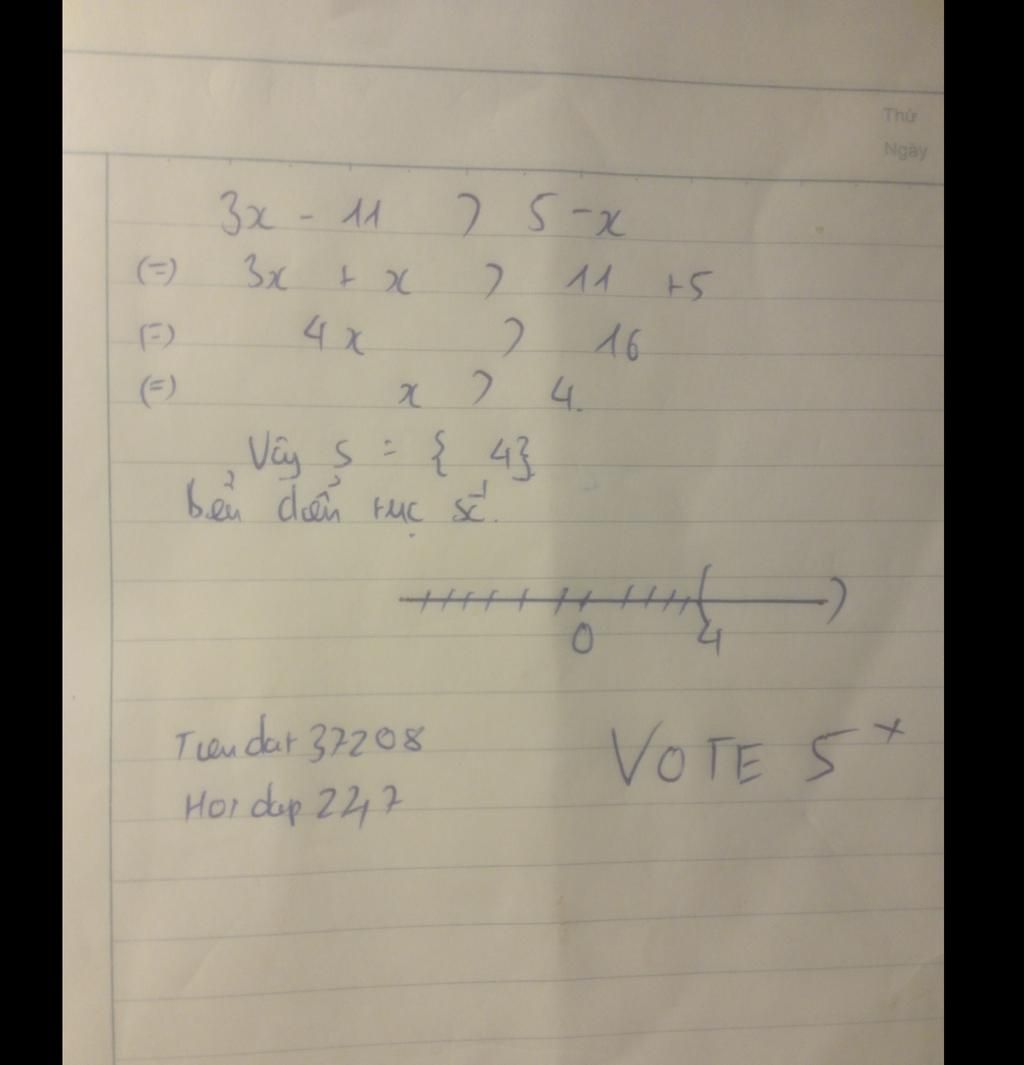 Thứ
Ngày
3x - 11 > 5 - x
(=) 3x + x > 11 + 5
(=) 4x > 16
(=) x > 4.
Vây S = { 4}
bểu diển trục số.
0 4
Tiendat 37208
Hoidap 247
VOTE 5*